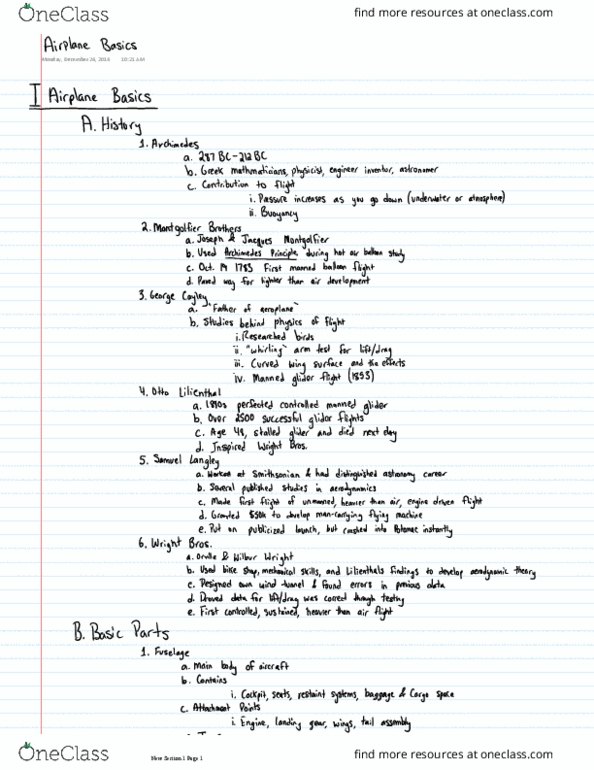 OneClass
find more resources at oneclass.com
Airplane Basics
Monday, December 26, 2016 10:21 AM
I Airplane Basics
A. History
1. Archimedes
a. 287 BC - 212 BC
b. Greek mathmaticians, physicist, engineer inventor, astronomer
c. Contribution to flight
i. Pressure increases as you go down (underwater or atmosphere)
ii. Buoyancy
2. Montgolfier Brothers
a. Joseph & Jacques Montgolfier
b. Used Archimedes Principle, during hot air balloon study
c. Oct. 19 1783 First manned balloon flight
d. Paved way for lighter than air development
3. George Cayley
a. "Father of aeroplane"
b. Studies behind physics of flight
i. Researched birds
ii. "whirling" arm test for lift/drag
iii. Curved wing surface and the effects
iv. Manned glider flight (1853)
4. Otto Lilienthal
a. 1890s perfected controlled manned glider
b. Over 2500 successful glider flights
c. Age 48, stalled glider and died next day
d. Inspired Wright Bros.
5. Samuel Langley
a. Worked at Smithsonian & had distinguished astronomy career
b. Several published studies in aerodynamics
c. Made first flight of unmanned, heavier than air, engine driven flight
d. Granted $50k to develop man-carrying flying machine
e. Put on publicized launch, but crashed into Potomac instantly
6. Wright Bros.
a. Orville & Wilbur Wright
b. Used bike shop, mechanical skills, and Lilienthals findings to develop aerodynamic theory
c. Designed own wind tunnel & found errors in previous data
d. Proved data for lift/drag was correct though testing
e. First controlled, sustained, heavier than air flight
B. Basic Parts
1. Fuselage
a. Main body of aircraft
b. Contains
i. Cockpit, seats, restraint systems, baggage & Cargo space
c. Attachment Points
i. Engine, landing gear, wings, tail assembly
New Section 1 Page 1
OneClass
find more resources at oneclass.com